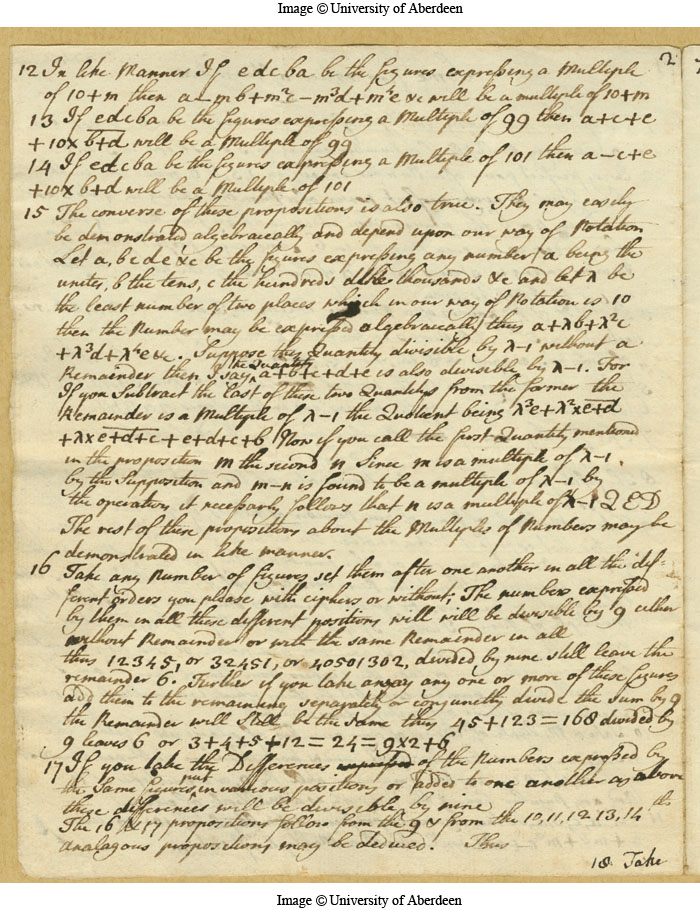 Image © University of Aberdeen
2
12 In like Manner If edcba be the figures expressing a Multiple
of 10+m then a-mb+m²c-m³d+m⁴e &c will be a multiple of 10+m
13 If edcba be the figures expressing a Multiple of 99 then a+c+e
+10x b+d will be a Multiple of 99
14 If edcba be the figures expressing a Multiple of 101 then a-c+e
+10x b+d will be a Multiple of 101
15 The converse of these propositions is also true. They may easily
be demonstrated algebraically and depend upon our way of Notation
Let a, b c d e &c be the figures expressing any number a being the
unites, b the tens, c the hundreds d the thousands &c and let λ be
the least number of two places which in our way of Notation is 10
then the Number may be expressed algebraically thus a+λb+λ²c
+λ³d+λ⁴e &c. Suppose this Quantity divisible by λ-1 without a
Remainder then I say the Quantity a+b+c+d+e is also divisible by λ-1. For
If you Subtract the last of these two Quantitys from the former the
Remainder is a Multiple of λ-1 the Quotient being λ³e+λ²x e+d
+λx e+d+c+e+d+c+b Now if you call the first Quantity mentioned
in the proposition m the second n Since m is a multiple of λ-1.
by the Supposition and m-n is found to be a multiple of λ-1 by
the operation it necessarly follows that n is a multiple of λ-1 QED
The rest of these propositions about the Multiples of Numbers may be
demonstrated in like manner.
16 Take any Number of figures set them after one another in all the dif-
ferent orders you please with ciphers or without; The numbers expressed
by them in all these different positions will will be divisible by 9 either
without Remainder or with the same Remainder in all
thus 12345, or 32451, or 40501302, divided by nine still leave the
remainder 6. Further if you take away any one or more of these figures
add them to the remaining separately or conjunctly divide the Sum by 9
the Remainder will Still be the Same thus 45+123=168 divided by
9 leaves 6 or 3+4+5+12=24=9x2+6
17 If you take the Differences of the Numbers expressed by
the Same figures put in various positions or added to one another as above
these differences will be divisible by nine
The 16 & 17 propositions follow from the 9 & from the 10, 11, 12 13, 14th
analagous propositions may be deduced. Thus
18 Take
Image © University of Aberdeen